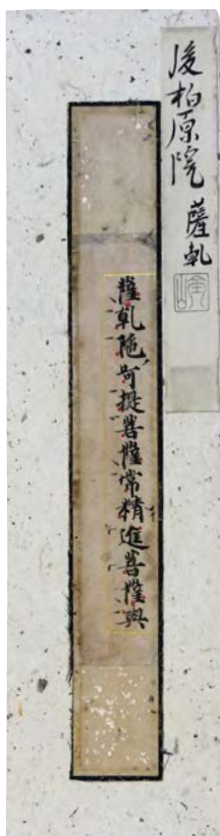 後柏原院 薩軋
薩軋陁訶提菩薩常精進菩薩與